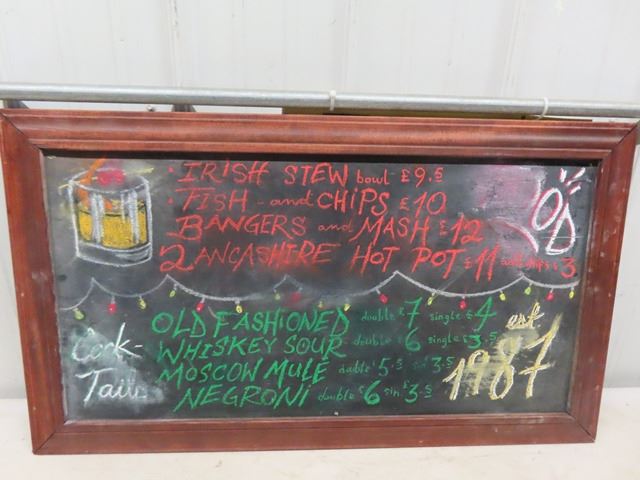 · IRISH STEW bowl £9.5
· FISH - and CHIPS £10
BANGERS and MASH £12
LANCASHIRE HOT POT £11 3
OLD FASHIONED double £7 single £4
WHISKEY SOUR double £6 single £3.5
MOSCOW MULE double £5.5 sin £3.5
NEGRONI double £6 sin £3.5
Cock-
Tail
est
1987